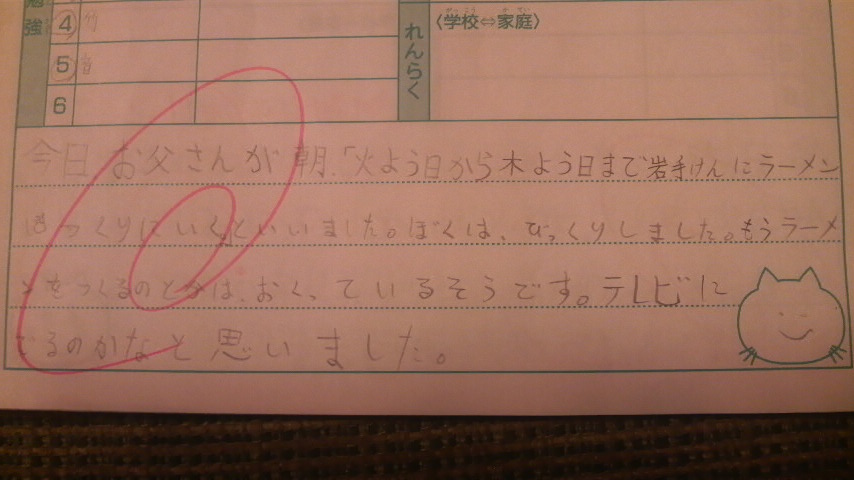 強
4 竹
5
6
れんらく
〈学校⇔家庭〉
今日お父さんが朝、「火よう日から木よう日まで岩手けんにラーメン
をつくりにいく。」といいました。ぼくは、びっくりしました。もうラーメ
ンをつくるのとかは、おくっているそうです。テレビに
でるのかなと思いました。